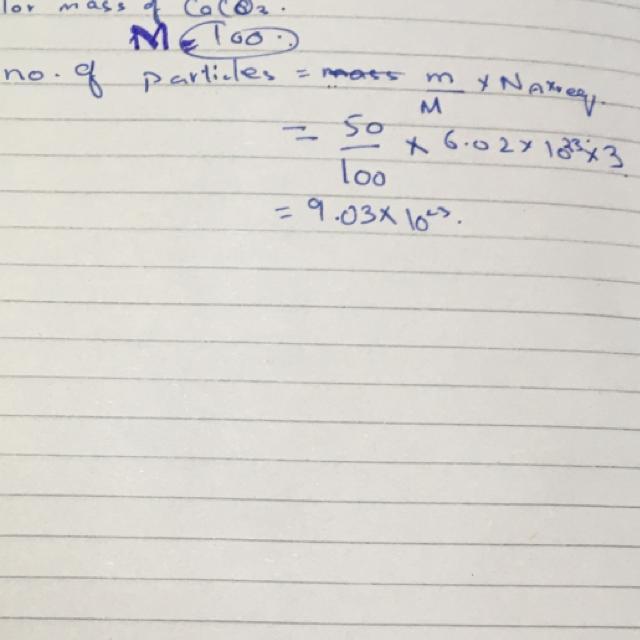 lor mass of CaCO3.
M = 100.
no. of particles = mass m/M × NA × req.
= 50/100 × 6.02 × 10^23 × 3
= 9.03 × 10^23.